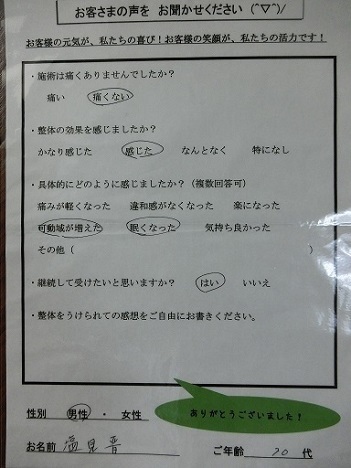 お客さまの声を お聞かせください (^▽^)/
お客様の元気が、私たちの喜び！お客様の笑顔が、私たちの活力です！
・施術は痛くありませんでしたか？
痛い 痛くない
・整体の効果を感じましたか？
かなり感じた 感じた なんとなく 特になし
・具体的にどのように感じましたか？（複数回答可）
痛みが軽くなった 違和感がなくなった 楽になった
可動域が増えた 眠くなった 気持ち良かった
その他（ ）
・継続して受けたいと思いますか？ はい いいえ
・整体をうけられての感想をご自由にお書きください。
ありがとうございました！
性別 男性 ・ 女性
お名前 温見 ご年齢 20 代